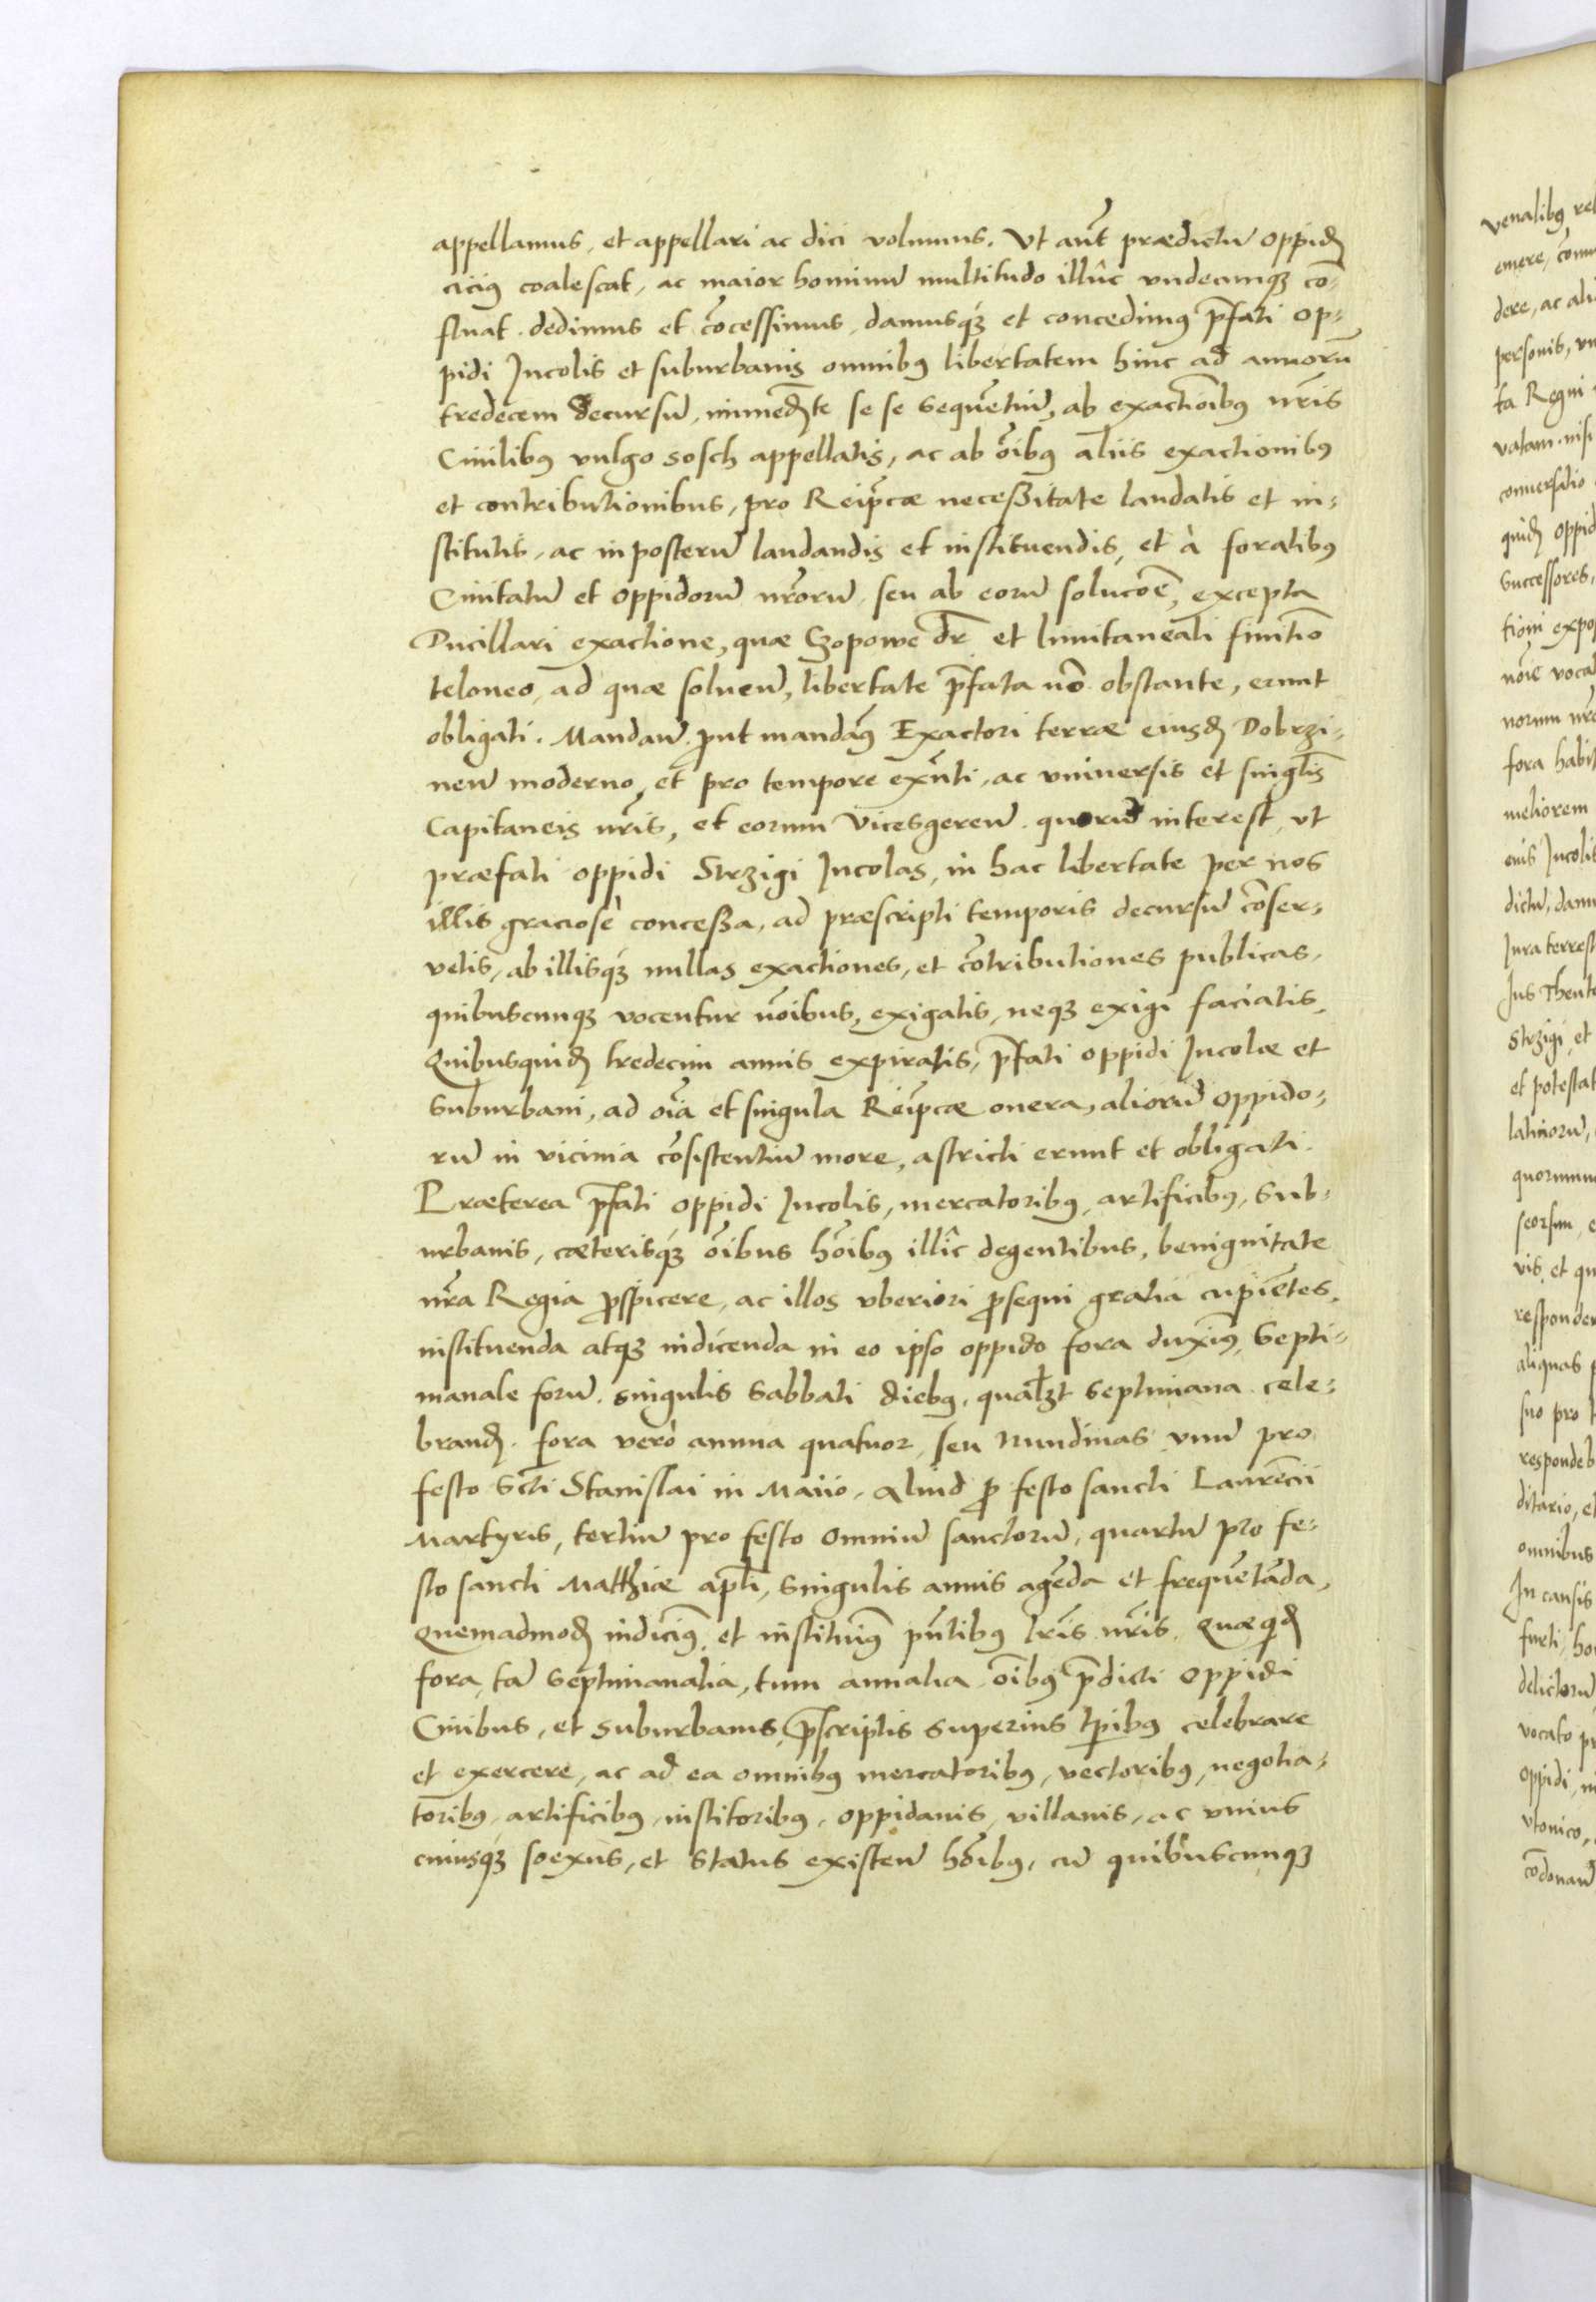 appellamus, et appellari ac dici volumus. Vt aut̃ prædictũ oppidꝫ
cicius coalescat, ac maior hominũ multitudo illûc vndecunqꝫ cõ=
fluat. dedimus et cõcessimus, damusqꝫ́ et concedimꝰ p̃fati op=
pidi Incolis et suburbanis omnibꝰ libertatem hinc ad annorũ
tredecem decursũ, immedꝫte se se sequẽtiũ, ab exactiõibꝰ nr̃is
Ciuilibꝰ vulgo sosch appellatis, ac ab õibꝰ aliis exactionibꝰ
et contributionibus, pro Reip̃cæ neceßitate laudatis et in=
stitutis, ac in posterũ laudandis et instituendis, et à foralibꝰ
Ciuitatũ et oppidorũ nr̃orũ, seu ab eorũ solucõe, excepta
Ducillari exactione, quæ Czopowe dr̃ et limitaneali finitio
teloneo, ad quæ soluenũ, libertate p̃fata nõ obstante, erunt
obligati. Mandam̃ ꝓut mandamꝰ Exactori terræ eiusdꝫ Dobrzi=
nen̄ moderno, et pro tempore exñti, ac vniuersis et singl̃is
Capitaneis nr̃is, et eorum Vicesgeren̄ quorũ interest, vt
præfati oppidi Strzigi Incolas, in hac libertate per nos
illis graciosè conceßa, ad præscripti temporis decursũ cõser=
vetis, ab illisqꝫ́ nullas exactiones, et cõtributiones publicas,
quibuscunqꝫ vocentur nõibus, exigatis, neqꝫ exigi faciatis.
Quibusquidꝫ tredecim annis expiratis, p̃fati oppidi Incolæ et
Suburbani, ad oĩa et singula Reip̃cæ onera, aliorũ oppido=
rũ in vicinia cõsistentiũ more, astricti erunt et obligati.
Præterea p̃fati oppidi Incolis, mercatoribꝰ, artificibꝰ, Sub=
urbanis, cæterisqꝫ́ õibus hõibꝰ illîc degentibus, benignitate
nr̃a Regia ꝓspicere, ac illos vberiori ꝓsequi gratia cupiẽtes,
instituenda atqꝫ indicenda in eo ipso oppido fora duximꝰ, Septi=
manale forũ, singulis Sabbati diebꝰ, qual̃zt septimana cele=
brandꝫ. fora verò annua quatuor, seu Nundinas vnũ pro
festo Scti Stanislai in Maiio, Aliud ꝓ festo sancti Laurẽcii
Martyris, tertiũ pro festo Omniũ sanctorũ, quartũ pro fe=
sto sancti Matthiæ apl̃i, singulis annis agẽda et frequẽtãda,
Quemadmodꝫ indicimꝰ et instituimꝰ pñtibꝰ lr̃is nr̃is. Quæqdꝫ
fora, tã septimanalia, tum annalia õibꝰ p̃dicti oppidi
Ciuibus, et suburbanis, p̃scriptis superius tp̃ibꝰ celebrare
et exercere, ac ad ea omnibꝰ mercatoribꝰ, vectoribꝰ, negotia=
toribꝰ, artificibꝰ, institoribꝰ, oppidanis, villanis, ac vnius
cuiusqꝫ́ soexus, et status existen̄ hõibꝰ, cũ quibuscunqꝫ
venalibꝰ
emere,
dere, ac
personis,
ta Regni
vatam. nisi
conuersatio
quidꝫ oppid
Successores,
tioni expo
nõie voca
norum
fora habit
meliorem
eius Incolis
dictũ,
Iura terrest
Ius Theut
Strzigi, et
et potestat
latinorũ,
quorumu
seorsim,
vis, et qu
responder
aliquas
suo pro
respondeb
ditario, et
omnibus
In causis
furti, ho
delictorũ
vocato
oppidi,
vtonico,
cõdonan̄